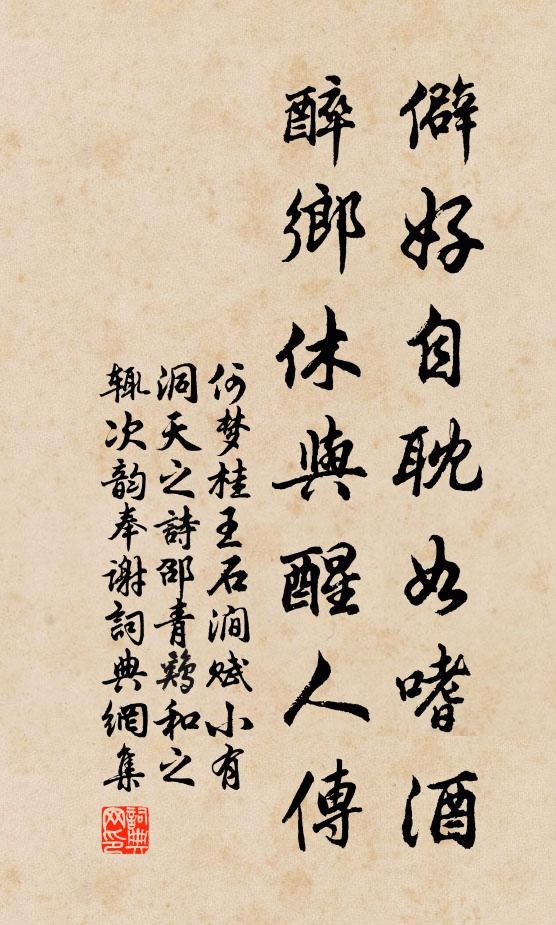 僻好自耽如嗜酒
醉鄉休與醒人傳
何梦桂王石澗赋小有
洞天之詩邵青鷄和之
辄次韵奉谢詞典網集
詞典
网印